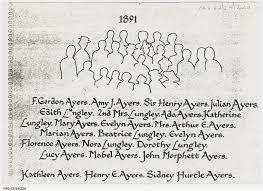 1891
F. Gordon Ayers. Amy J. Ayers. Sir Henry Ayers. Julian Ayers.
Edith Lungley. 2nd Mrs. Lungley. Ada Ayers. Katherine
Lungley. Mary Ayers. Evelyn Ayers. Mrs. Arthur E. Ayers.
Marian Ayers. Beatrice Lungley. Evelyn Ayers.
Florence Ayers. Nora Lungley. Dorothy Lungley.
Lucy Ayers. Mabel Ayers. John Morphett Ayers.
Kathleen Ayers. Henry E. Ayers. Sidney Hurcle Ayers.